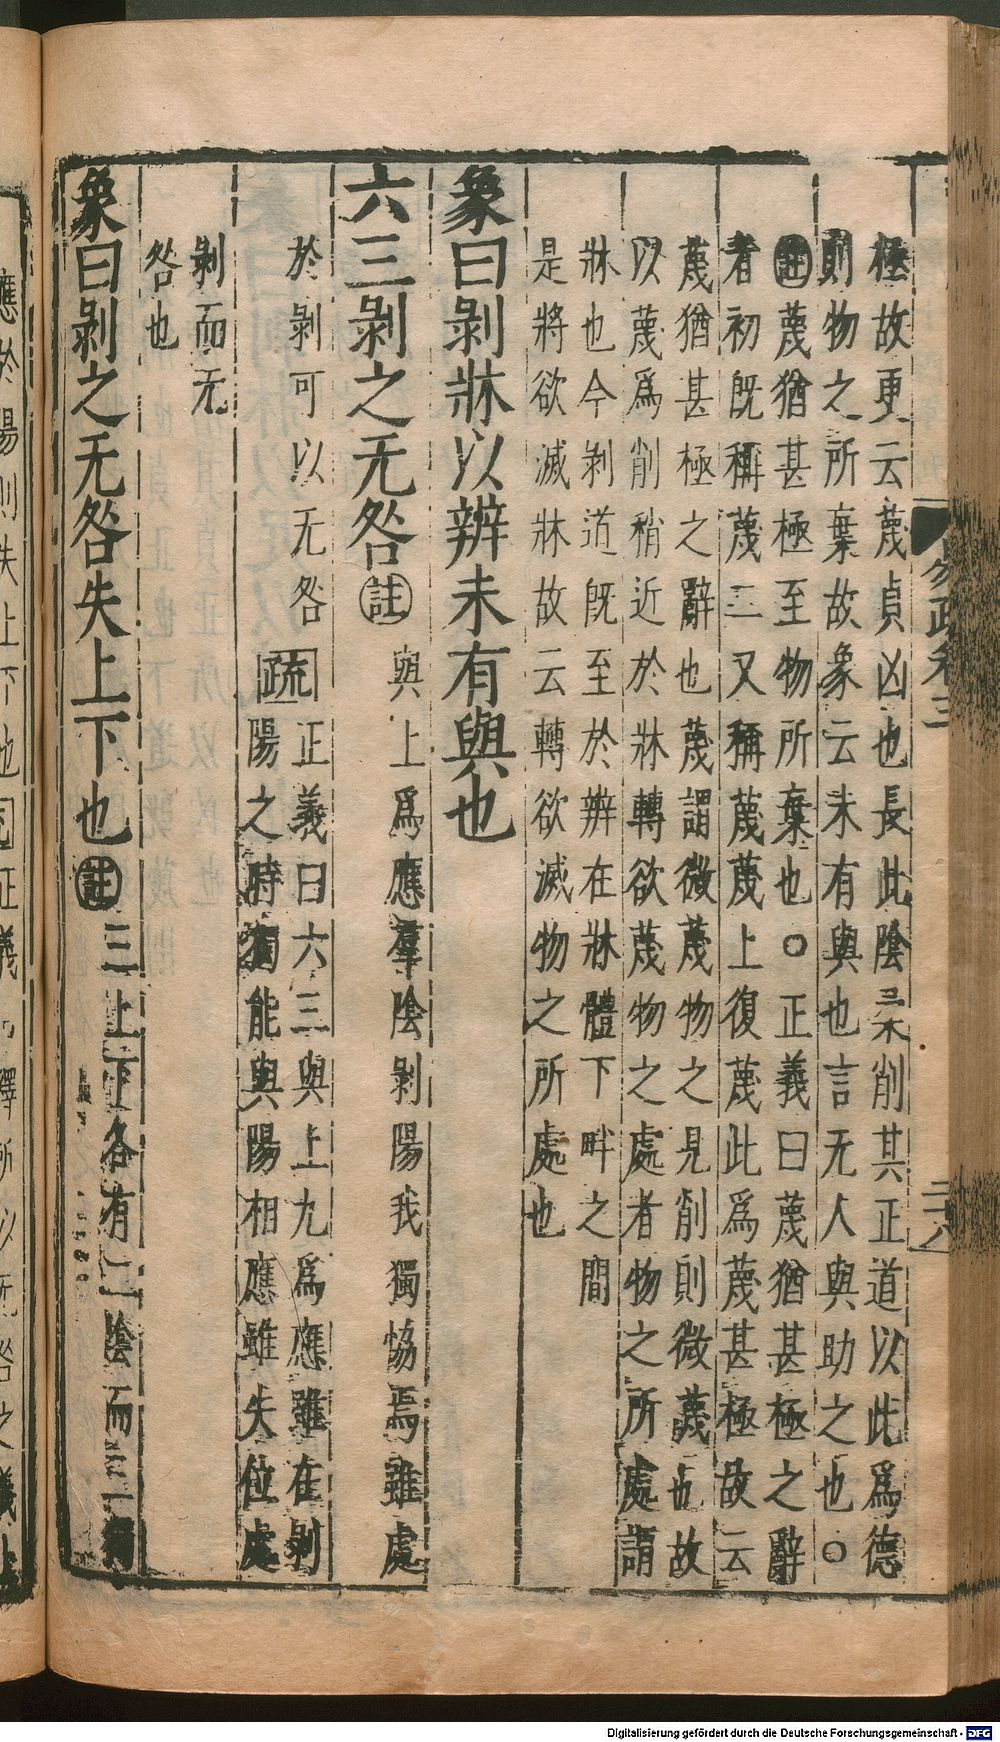 易疏卷三
二十八
極故更云蔑貞凶也長此陰柔削其正道以此爲德
則物之所棄故象云未有與也言无人與助之也○
註蔑猶甚極至物所棄也○正義曰蔑猶甚極之辭
者初旣稱蔑二又稱蔑蔑上復蔑此爲蔑甚極故云
蔑猶甚極之辭也蔑謂微蔑物之見削則微蔑也故
以蔑爲削稍近於牀轉欲蔑物之處者物之所處謂
牀也今剝道旣至於辨在牀體下畔之間
是將欲滅牀故云轉欲滅物之所處也
象曰剝牀以辨未有與也
六三剝之无咎註與上爲應羣陰剝陽我獨恊焉雖處
於剝可以无咎疏正義曰六三與上九爲應雖在剝
陽之時獨能與陽相應雖失位處
剝而无
咎也
象曰剝之无咎失上下也註三上下各有二陰而三獨
應於陽則失上下也疏正義曰釋所以无咎之義
Digitalisierung gefördert durch die Deutsche Forschungsgemeinschaft - DFG